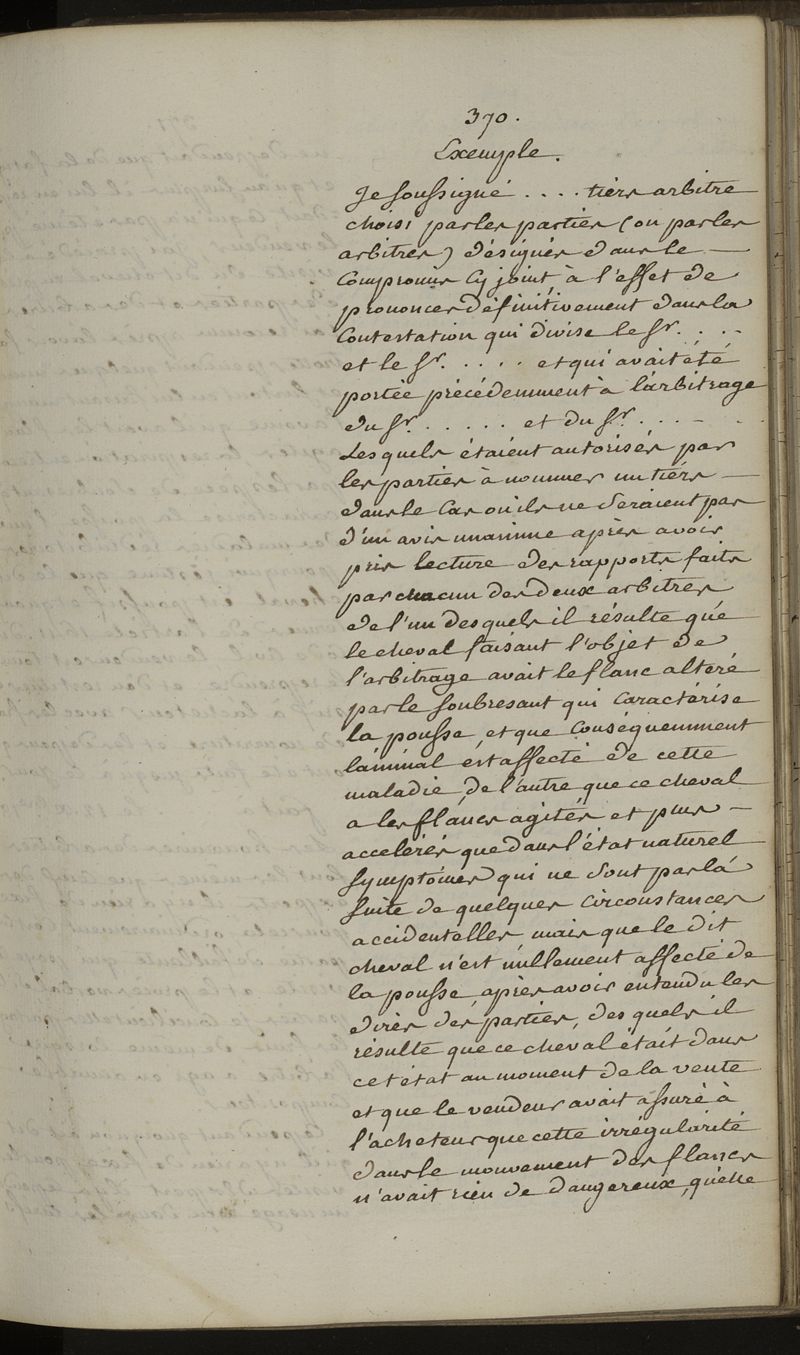 370.
Exemple.
Je soussigné . . . . tiers arbitre
choisi par les parties (ou par les
arbitres) désignés dans le —
Compromis Cy joint, à l'effet de
prononcer définitivement dans la
Contestation qui divise le Sr. . . .
et le Sr. . . . . et qui avait été
portée précédemment à l'arbitrage
du Sr. . . . . . et du Sr. . . . .
Les quels étaient autorisés par
les parties à nommer un tiers —
dans le Cas où ils ne seraient pas
d'un avis unanime après avoir
pris lecture des rapports faits
par chacun des deux arbitres
de l'un des quels il résulte que
le cheval faisant l'objet de
l'arbitrage avait le flanc altéré
par le soubresaut qui Caractérise
la pousse, et que Conséquemment
l'animal est affecté de cette
maladie, de l'autre que ce cheval
a les flancs agités et plus —
accelérés que dans l'état naturel
symptômes qui ne sont par là
suite de quelques Circonstances
accidentelles, mais que le dit
cheval n'est nullement affecté de
la pousse, après avoir entendu les
dires des parties, des quels il
résulte que ce cheval était dans
cet état au moment de la vente
et que le vendeur avait assuré à
l'acheteur que cette irrégularité
dans le mouvement des flancs
n'avait rien de dangereux, qu'elle